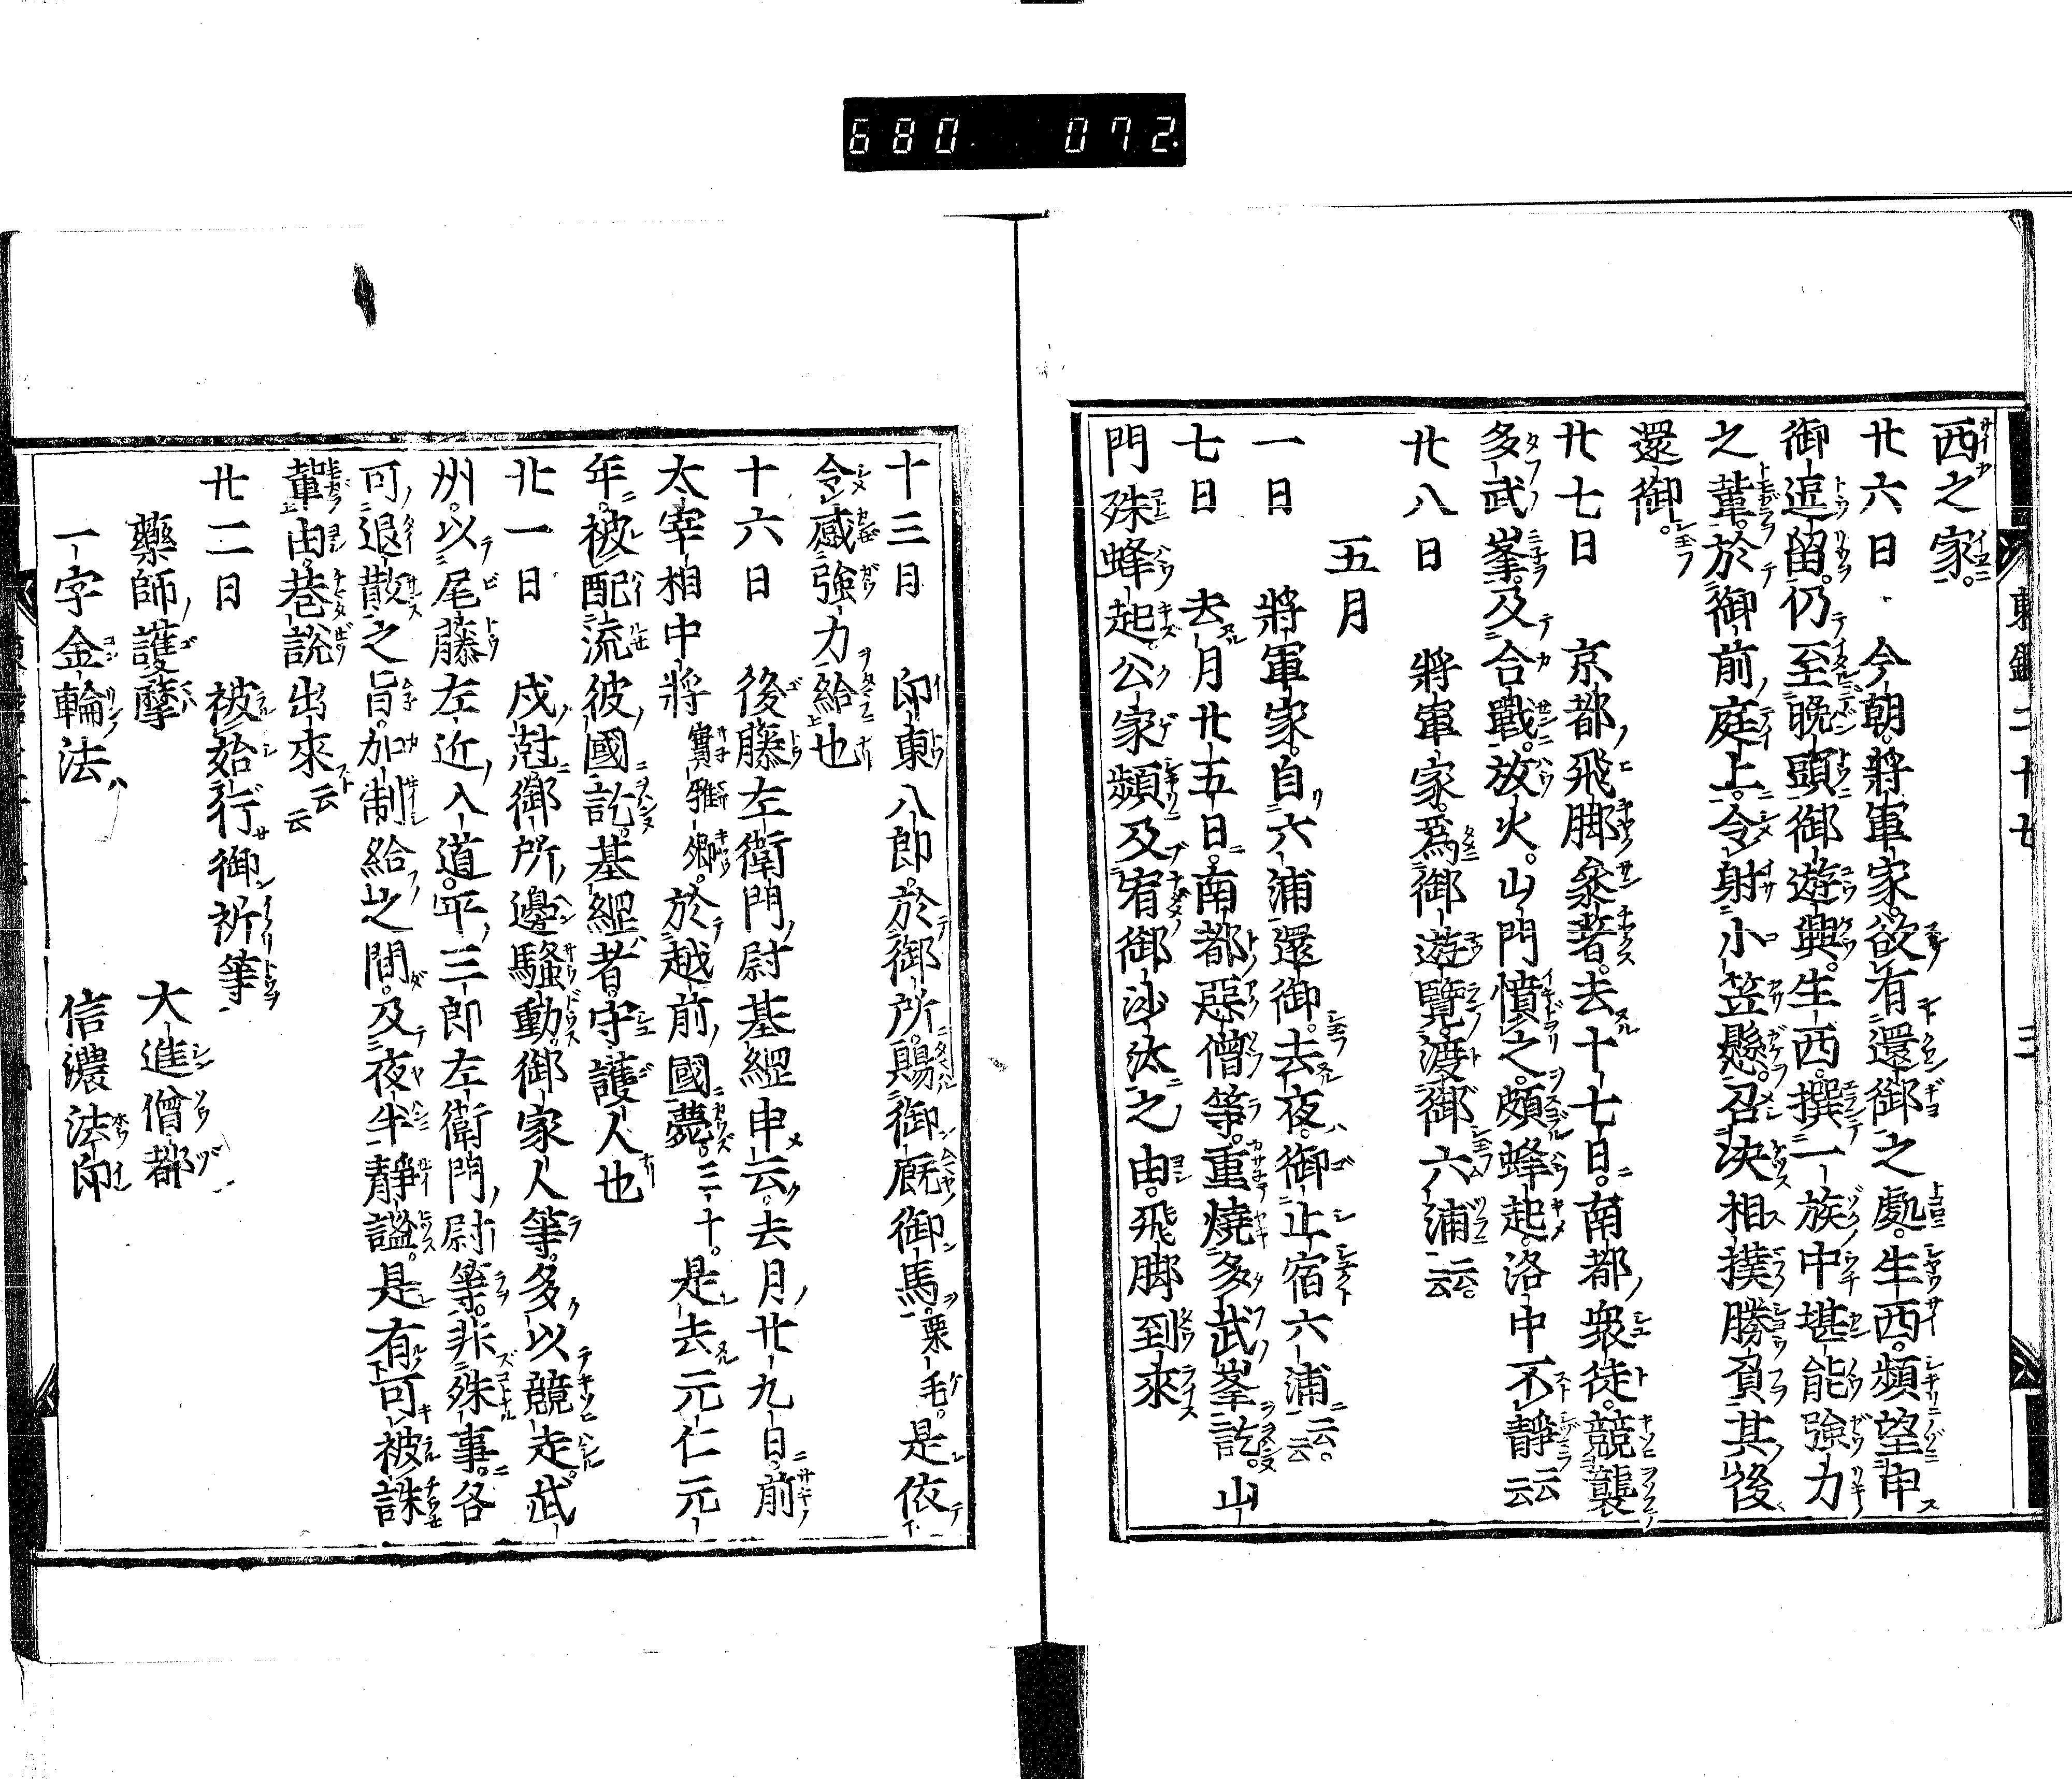 680 072
西之家。
廿六日 今朝。將軍家。欲有還御之處。生西。頻望申
御逗留。仍至晩頭御遊興。生西。撰一族中堪能強力
之輩。於御前庭上。令射小笠懸。召決相撲勝負其後
還御。
廿七日 京都飛脚參著。去十七日。南都衆徒。競襲
多武峯。及合戰。放火。山門憤之。頗蜂起。洛中不靜云云
廿八日 將軍家。爲御遊覽渡御六浦云云。
五月
一日 將軍家。自六浦還御。去夜。御止宿六浦云云。
七日 去月廿五日。南都惡僧等。重燒多武峯訖。山
門殊蜂起公家頻及宥御沙汰之由。飛脚到來
十三日 印東八郎。於御所。賜御厩御馬。栗毛。是依
令感強力給也
十六日 後藤左衛門尉基綱申云。去月廿九日。前
太宰相中將實雅卿。於越前國薨。三十。是去元仁元
年。被配流彼國訖。基綱者。守護人也
廿一日 戌尅御所邊騷動。御家人等。多以競走。武
州。以尾藤左近入道。平三郎左衛門尉等。非殊事。各
可退散之旨。加制給之間。及夜半靜謐。是有可被誅
輩由。巷説出來云云
廿二日 被始行御祈等
藥師護摩 大進僧都
一字金輪法 信濃法印